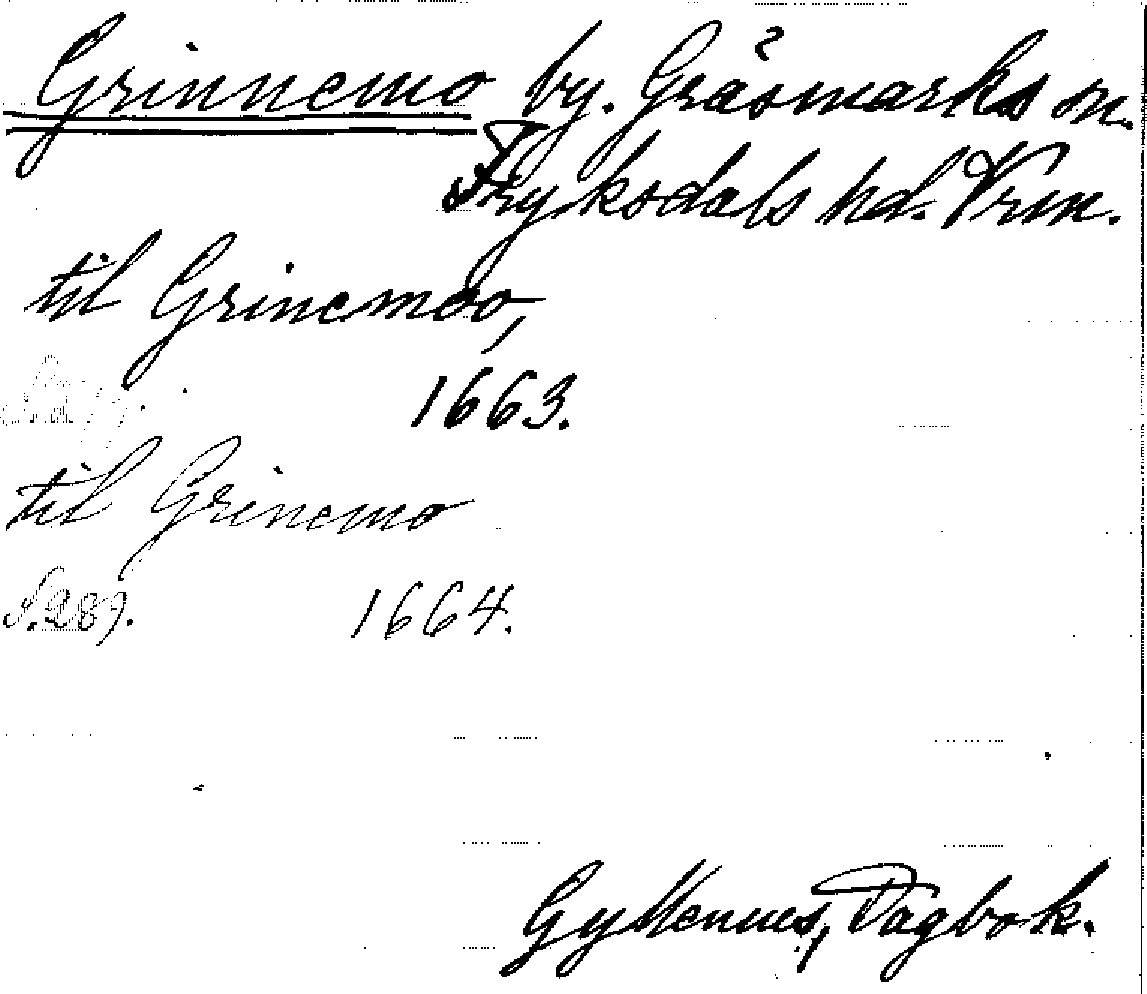 Grinnemo by. Gräsmarks sn.
Fryksdals hd. Vrm.
til Grinemoo,
1663.
til Grinemo
S. 289. 1664.
Gyllennes, Dagbok.